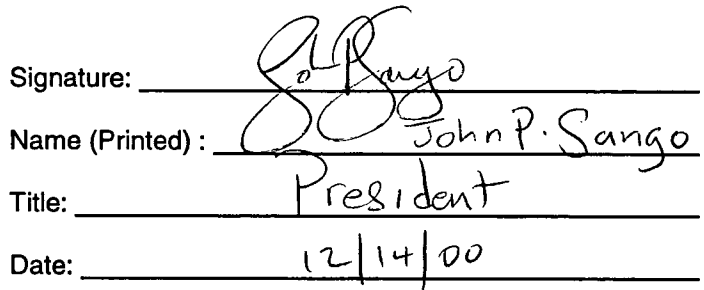 Signature: Joh P Sango
Name (Printed) : John P. Sango
Title: President
Date: 12/14/00